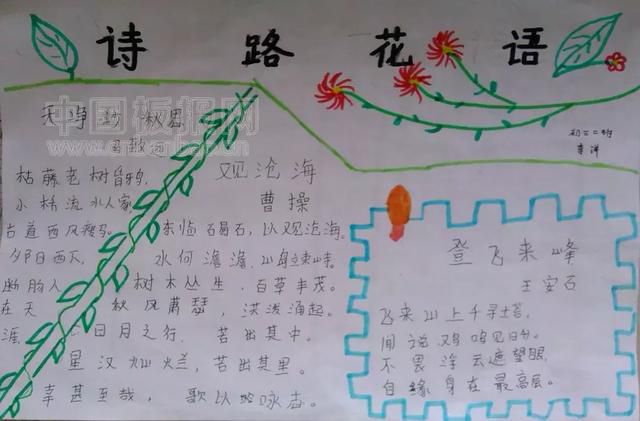 诗路花语
中国板报网
初二二班
李洋
天净沙 秋思
马致远
枯藤老树昏鸦,
小桥流水人家,
古道西风瘦马。
夕阳西下,
断肠人
在天
涯
观沧海
曹操
东临碣石,以观沧海。
水何澹澹,山岛竦峙。
树木丛生,百草丰茂。
秋风萧瑟,洪波涌起。
日月之行,若出其中。
星汉灿烂,若出其里。
幸甚至哉,歌以咏志。
登飞来峰
王安石
飞来山上千寻塔,
闻说鸡鸣见日升。
不畏浮云遮望眼,
自缘身在最高层。